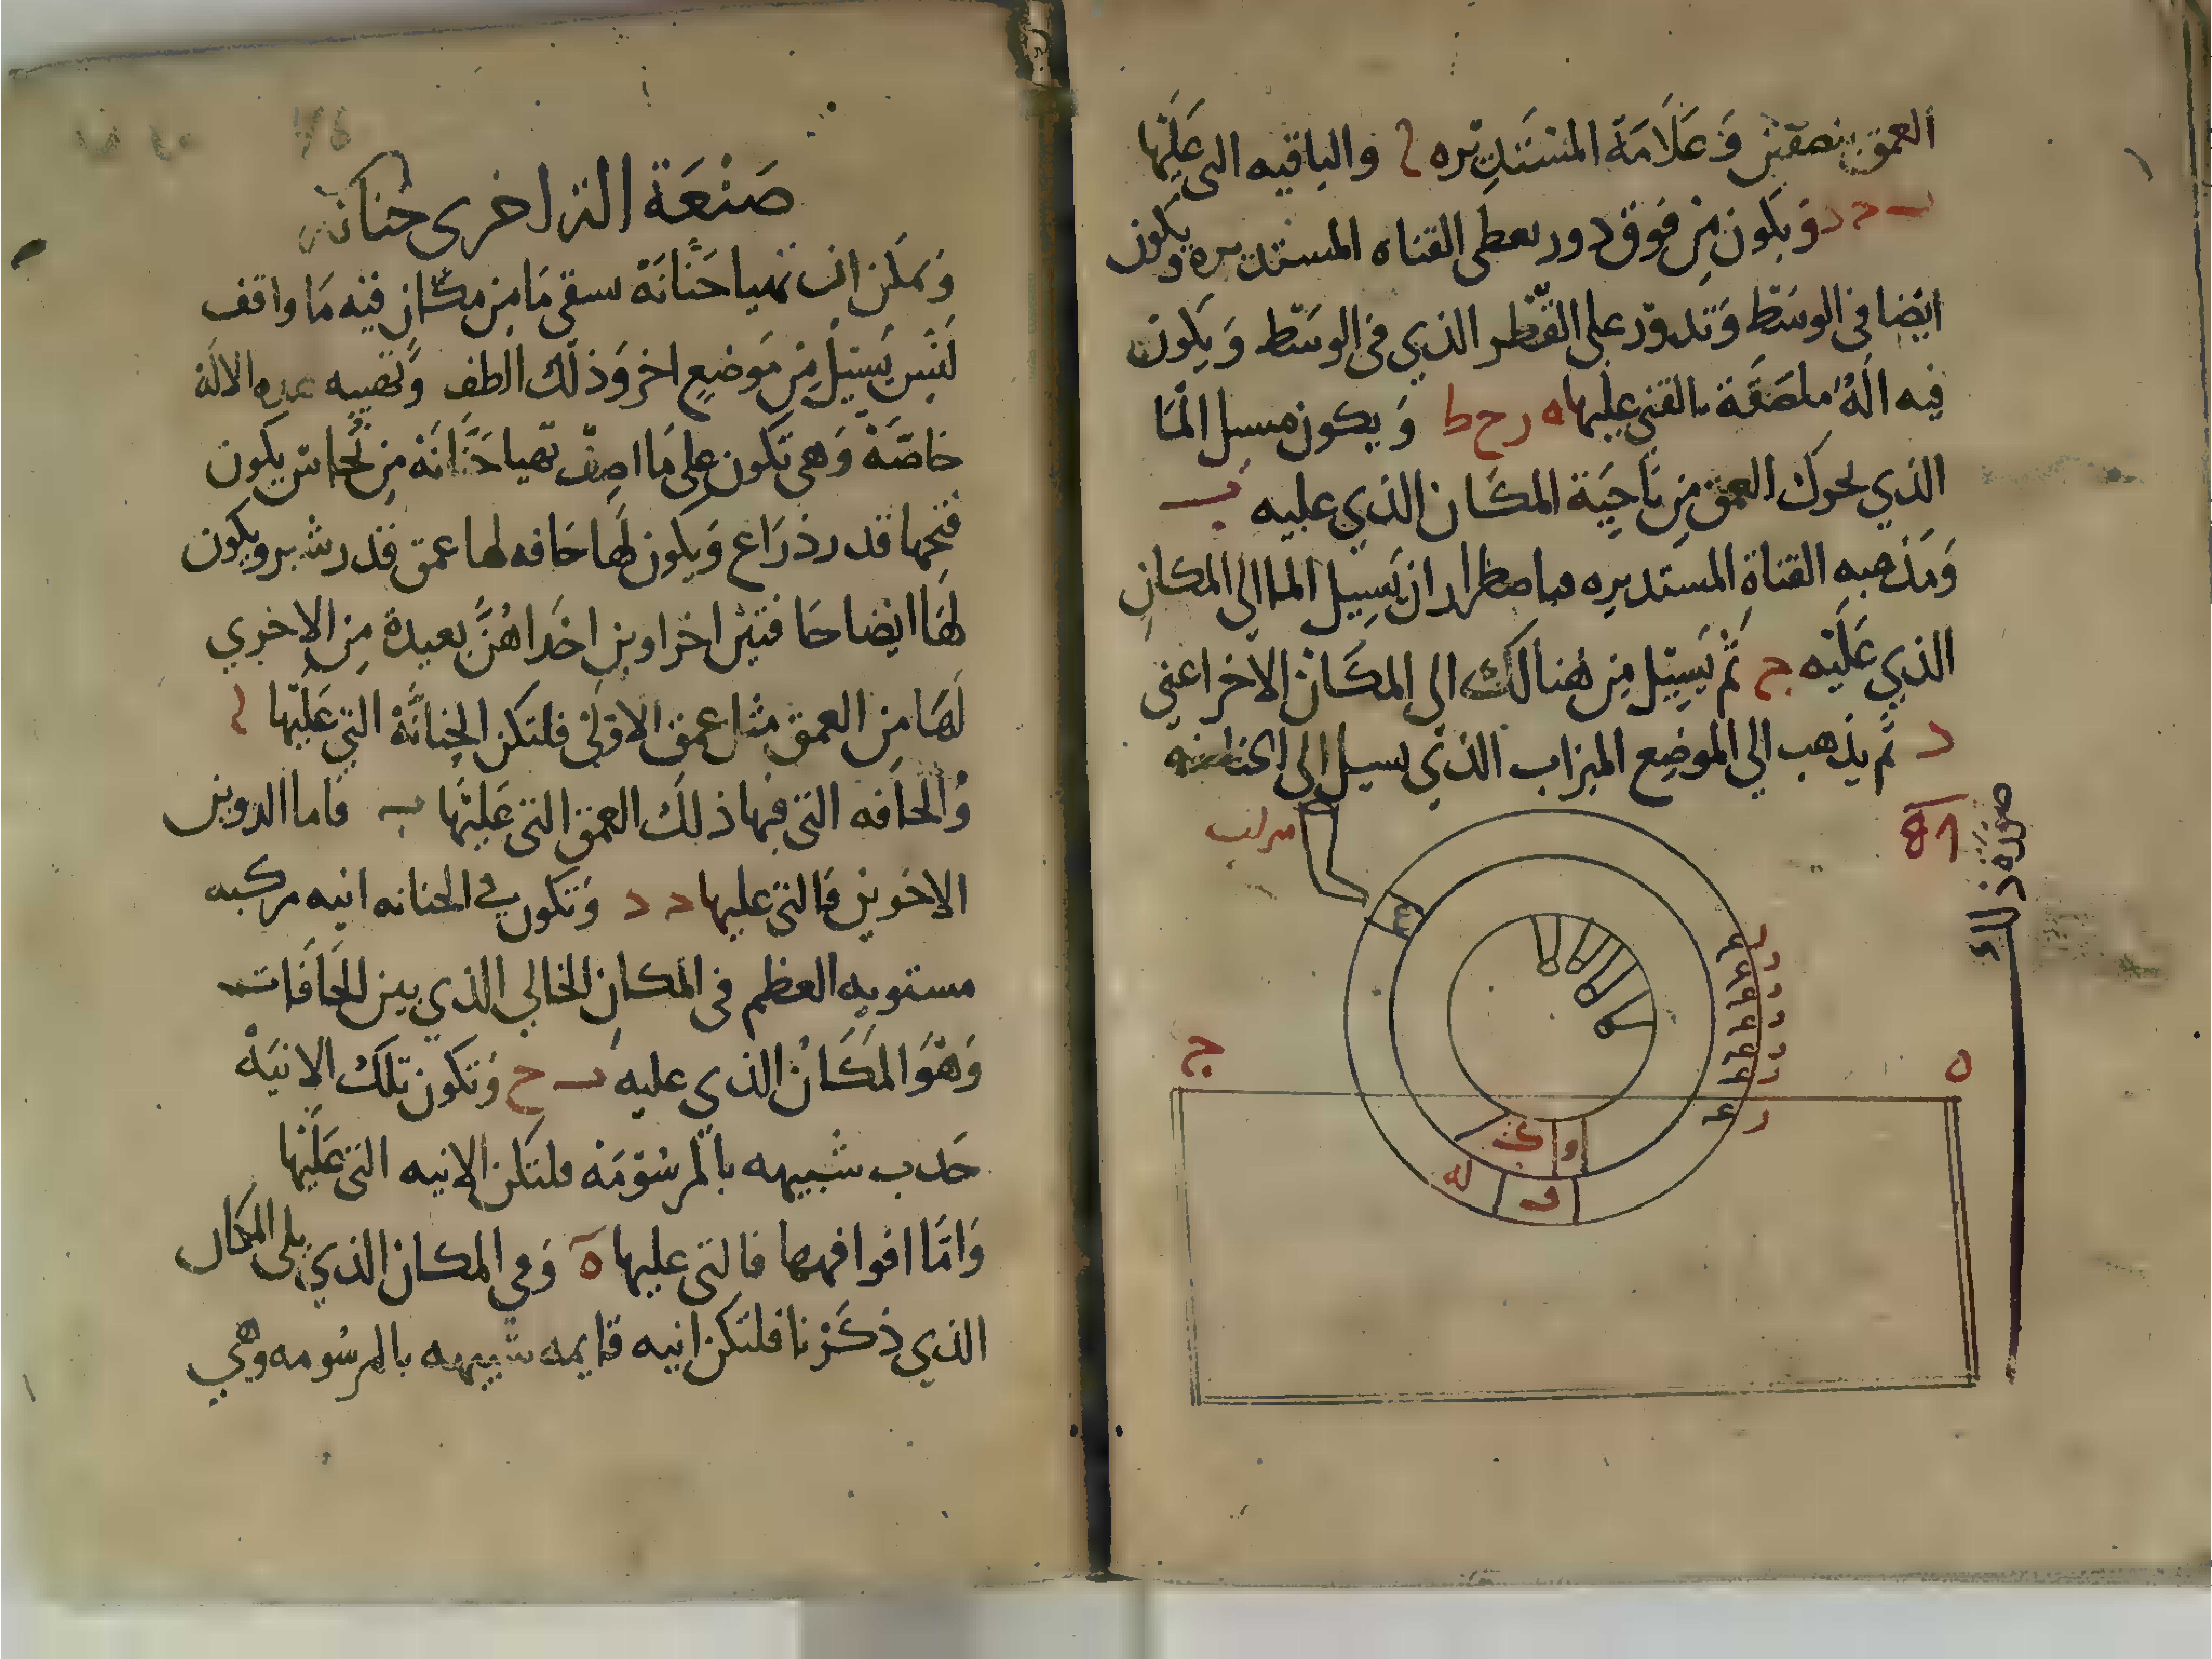 العمق بنصفين وَعَلَامَة المستَدِيره ا والباقيه التى عَلَيْها
ب ح د وَيكون مِن فوق دور يعطى القناه المستديره ويكون
ايضا فى الوسَط وَتدوّر على القُطر الذي فى الوسَط وَيكون
فيه الَهُ ملصَقَة بالقنى عليها ه ر ح ط وَيكون مسيل المَا
الذي يحرك العمق مِن نَاحِيَة المكَان الذي عليه ب
وَمَذهبه القناةِ المستديره فباضطرار ان يَسِيل الما الى المكانِ
الذي عَلَيْه ج ثم يَسِيل مِن هُنالك الى المكَان الاخر اعنى
د ثم يذهب الى الموضع الميزاب الذي يسيل الى الحنانه
صورة ذلك
ميزاب
ج
ه
صَنْعَة الة اخرى حنانه
وَيمكن ان تهيا حَنَّانَة تسقى مَا مِن مكَان فيه مَا واقف
لَيْسَ يَسيل مِن مَوضع اخر وَذلك الطف وَتصيبه هذه الالة
خاصَّة وَهى تكون على مَا اصِف تهيا حَنَّانَه مِن نُحاس يكون
فتحها قدر ذرَاع وَيكون لهَا حَافه لها عمق قدر شبر ويكون
لهَا ايضا حَافتَيْن اخراوين اخَداهُنَّ بعيدة مِن الاخرى
لَهَا مِن العمق مثل عمق الاوّلى فلتكن الحنانَّة التى عَلَيْها ا
وُالحافه التى فيها ذلَك العمق التى عَلَيْها ب فاما الدوين
الاخوين فَالتى عليها د د وَتكون في الحنانه انيه مركبه
مستويه العظم فى المكان الخالي الذي بين الحَافَات
وَهْوَ المَكَانُ الذي عليه ب ح وَتكون تلكَ الانيَة
حَدب شبيهه بالمرسُوْمَة فلتكن الانيه التى عَلَيْها
وَامَّا افوافهها فالتى عليها ه وَمِى المكان الذي يلى المكان
الذي ذكَرْنا فلتكن انيه قايمه شبيهه بالمرسُومه وهي